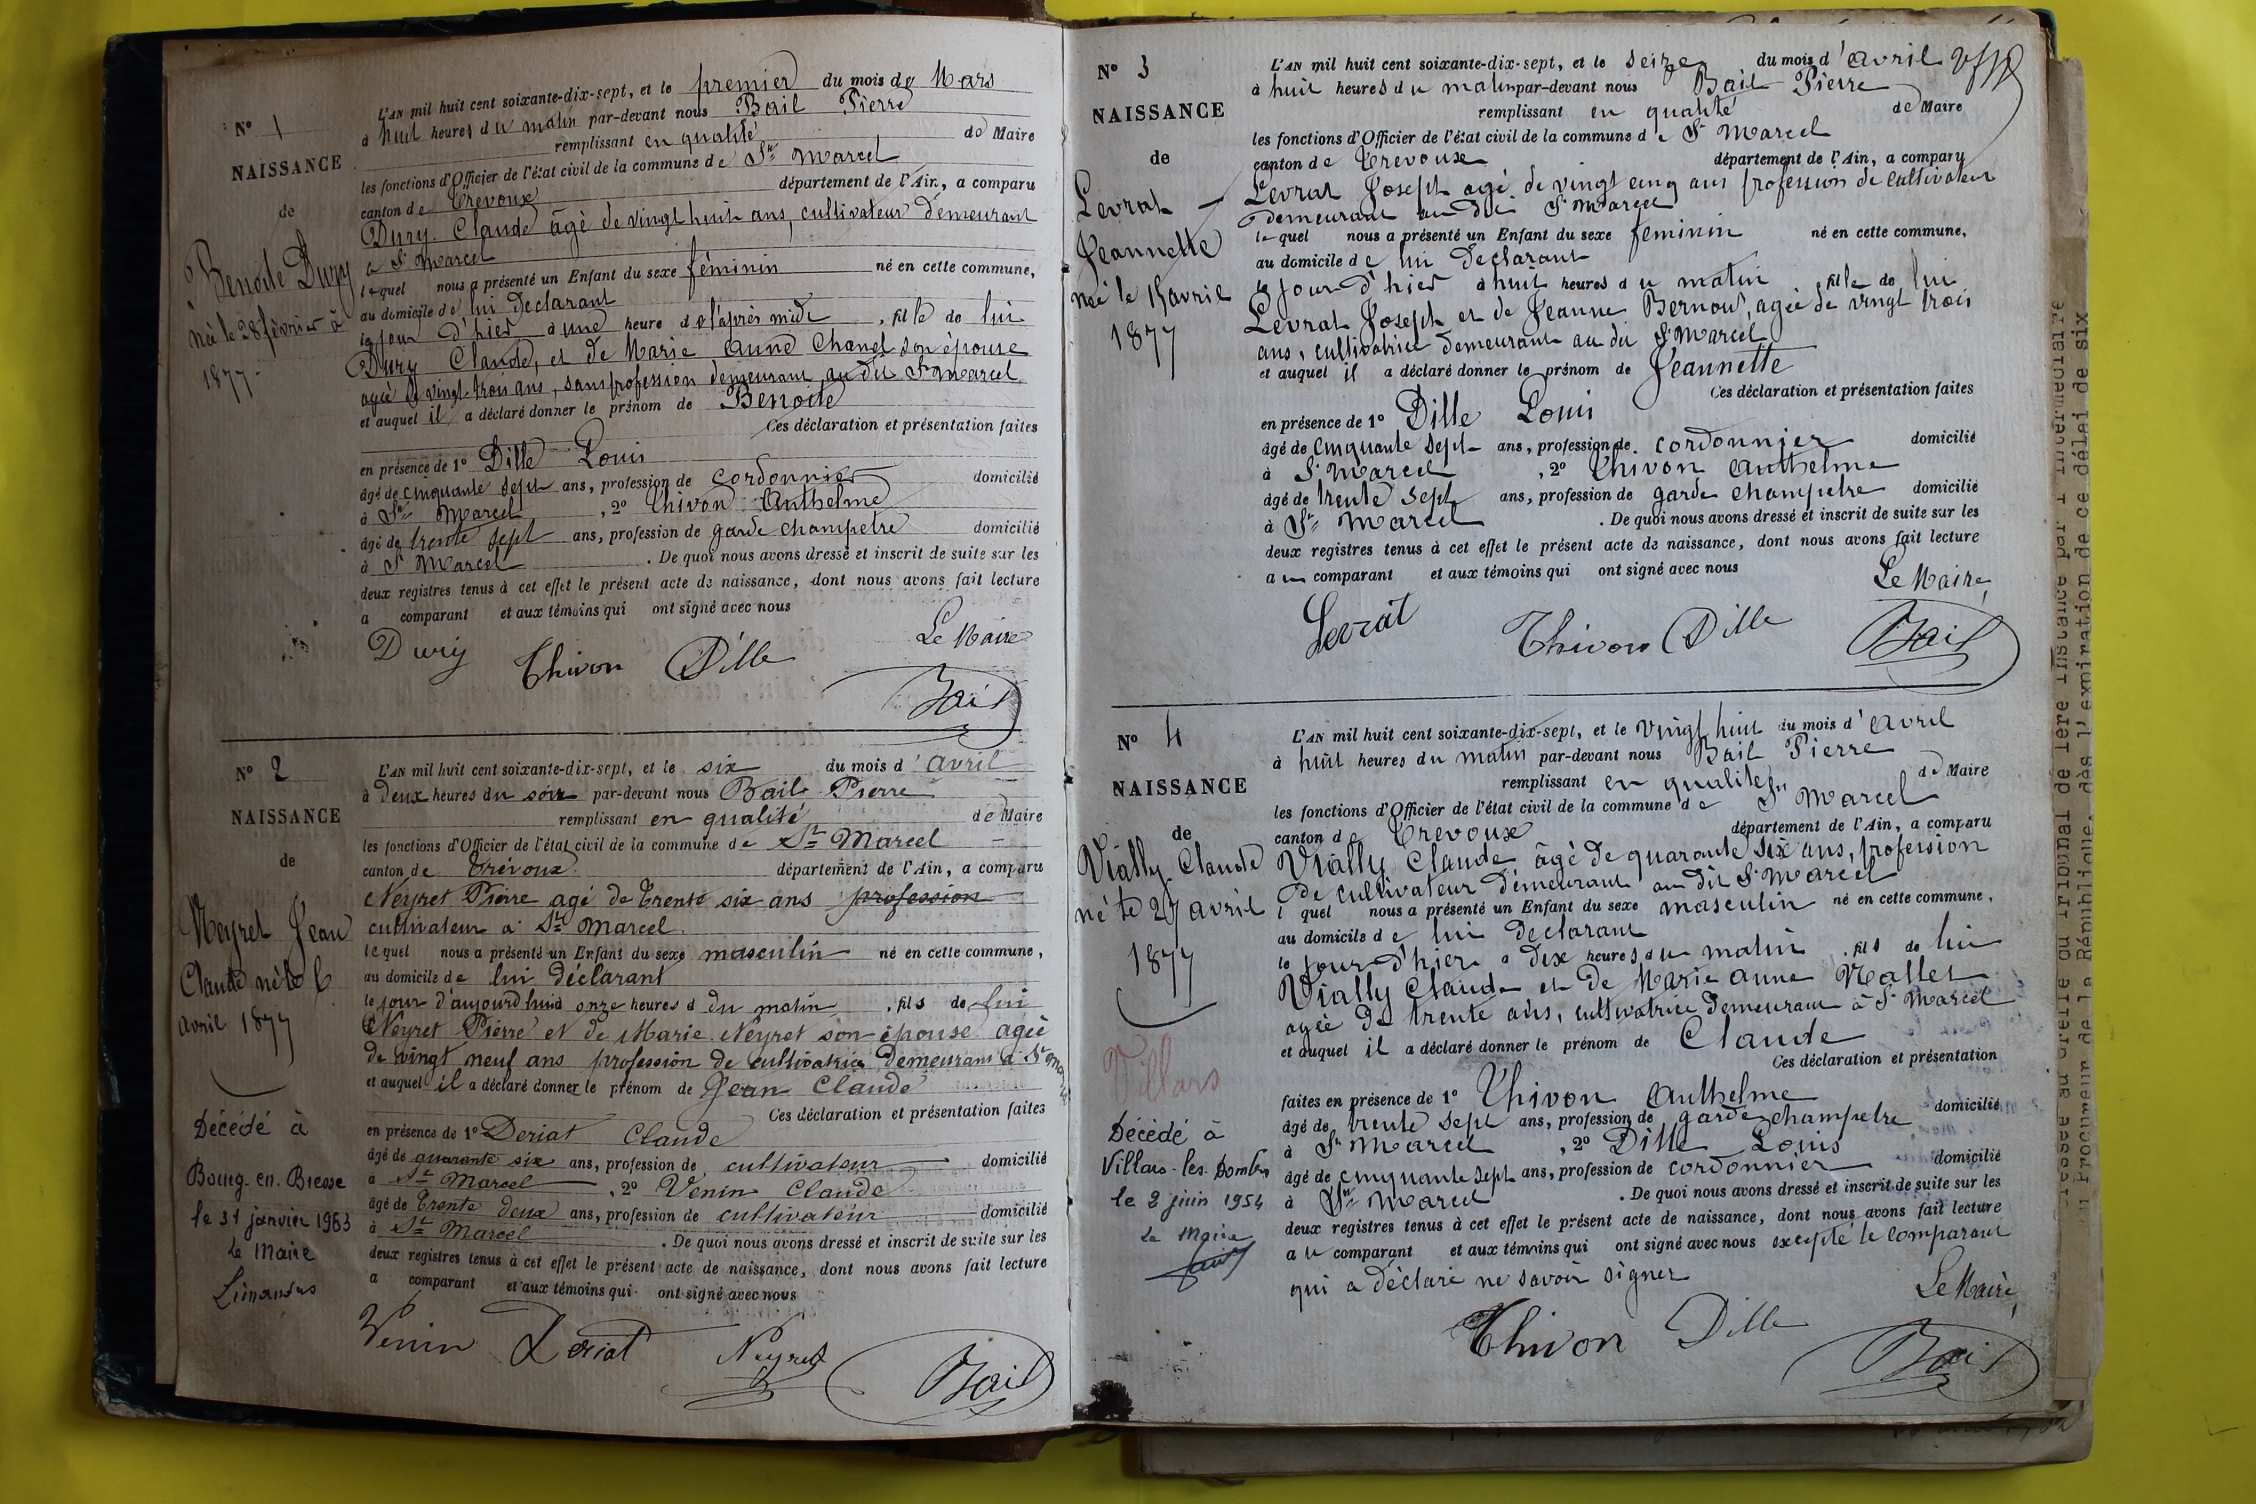 N° 1
NAISSANCE
de
Benoite Dury
née le 28 février à
1877
L'AN mil huit cent soixante-dix-sept, et le premier du mois de Mars
à huit heures du matin par-devant nous Bail Pierre
remplissant en qualité de Maire
les fonctions d'Officier de l'état civil de la commune de St Marcel
canton de Trevoux département de l'Ain, a comparu
Dury Claude âgé de vingt huit ans, cultivateur demeurant
a St Marcel
lequel nous a présenté un Enfant du sexe féminin né en cette commune,
au domicile de lui declarant
le jour d'hier à une heure de l'après midi , fille de lui
Dury Claude, et de Marie anne Chanel son épouse
agée de vingt trois ans, sans profession demeurant au dit St Marcel
et auquel il a déclaré donner le prénom de Benoite
Ces déclaration et présentation faites
en présence de 1° Dille Louis
âgé de cinquante sept ans, profession de cordonnier domicilié
à St Marcel , 2° Thivon Anthelme
âgé de trente sept ans, profession de garde champetre domicilié
à St Marcel . De quoi nous avons dressé et inscrit de suite sur les
deux registres tenus à cet effet le présent acte de naissance, dont nous avons fait lecture
a comparant et aux témoins qui ont signé avec nous
Le Maire
Dury Thivon Dille
Bail
N° 2
NAISSANCE
de
Neyret Jean
Claude né le 6
avril 1877
Décédé à
Bourg-en-Bresse
le 31 janvier 1963
Le Maire
L'AN mil huit cent soixante-dix-sept, et le six du mois d'avril
à Deux heures du soir par-devant nous Bail Pierre
remplissant en qualité de Maire
les fonctions d'Officier de l'état civil de la commune de St Marcel
canton de Trévoux département de l'Ain, a comparu
Neyret Pierre agé de Trente six ans profession
cultivateur a St Marcel
lequel nous a présenté un Enfant du sexe masculin né en cette commune,
au domicile de lui déclarant
le jour d'aujourd'hui à onze heures d du matin , fils de lui
Neyret Pierre et de Marie Neyret son épouse agée
de vingt neuf ans profession de cultivatrice Demeurant a St Marcel
et auquel il a déclaré donner le prénom de Jean Claude
Ces déclaration et présentation faites
en présence de 1° Deriat Claude
âgé de quarante six ans, profession de cultivateur domicilié
à St Marcel , 2° Venin Claude
âgé de Trente deux ans, profession de cultivateur domicilié
à St Marcel . De quoi nous avons dressé et inscrit de suite sur les
deux registres tenus à cet effet le présent acte de naissance, dont nous avons fait lecture
a comparant et aux témoins qui ont signé avec nous
Venin Deriat Neyret
Bail
N° 3
NAISSANCE
de
Levrat
Jeannette
née le 15 avril
1877
L'AN mil huit cent soixante-dix-sept, et le seize du mois d'avril
à huit heures du matin par-devant nous Bail Pierre
remplissant en qualité de Maire
les fonctions d'Officier de l'état civil de la commune de St Marcel
canton de Trevoux département de l'Ain, a comparu
Levrat Joseph agé de vingt cinq ans profession de cultivateur
demeurant au dit St Marcel
lequel nous a présenté un Enfant du sexe feminin né en cette commune,
au domicile de lui declarant
le jour d'hier à huit heures du matin , fille de lui
Levrat Joseph et de Jeanne Bernoud, agée de vingt trois
ans, cultivatrice demeurant au dit St Marcel
et auquel il a déclaré donner le prénom de Jeannette
Ces déclaration et présentation faites
en présence de 1° Dille Louis
âgé de cinquante sept ans, profession de cordonnier domicilié
à St Marcel , 2° Thivon Anthelme
âgé de trente sept ans, profession de garde champetre domicilié
à St Marcel . De quoi nous avons dressé et inscrit de suite sur les
deux registres tenus à cet effet le présent acte de naissance, dont nous avons fait lecture
au comparant et aux témoins qui ont signé avec nous
Le Maire,
Levrat Thivon Dille
Bail
N° 4
NAISSANCE
de
Vially Claude
né le 27 avril
1877
Villars
Décédé à
Villars-les-Dombes
le 2 juin 1954
Le Maire
L'AN mil huit cent soixante-dix-sept, et le vingt huit du mois d'avril
à huit heures du matin par-devant nous Bail Pierre
remplissant en qualité de Maire
les fonctions d'Officier de l'état civil de la commune de St Marcel
canton de Trevoux département de l'Ain, a comparu
Vially Claude âgé de quarante six ans, profession
de cultivateur demeurant au dit St Marcel
l quel nous a présenté un Enfant du sexe masculin né en cette commune,
au domicile de lui declarant
le jour d'hier à dix heures du matin , fils de lui
Vially Claude et de Marie anne
agée de trente ans, cultivatrice demeurant à St Marcel
et auquel il a déclaré donner le prénom de Claude
Ces déclaration et présentation
faites en présence de 1° Thivon Anthelme
âgé de trente sept ans, profession de garde champetre domicilié
à St Marcel , 2° Dille Louis
âgé de cinquante sept ans, profession de cordonnier domicilié
à St Marcel . De quoi nous avons dressé et inscrit de suite sur les
deux registres tenus à cet effet le présent acte de naissance, dont nous avons fait lecture
au comparant et aux témoins qui ont signé avec nous excepté le comparant
qui a déclaré ne savoir signer
Le Maire,
Thivon Dille
Bail
au greffe du Tribunal de 1ère Instance par l'intermédiaire
du Procureur de la République, dès l'expiration de ce délai de six